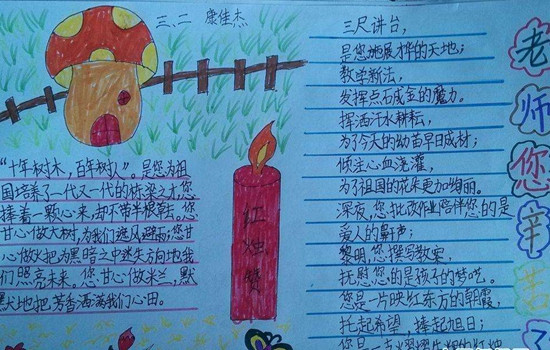 三、二 康佳杰
"十年树木，百年树人"。是您为祖
国培养了一代又一代的栋梁之才，您
捧着一颗心来，却不带半根草。您
甘心做大树，为我们遮风避雨；您甘
心做火把为黑暗之中迷失方向地我
们照亮未来。您甘心做米兰，默
默地把芳香洒满我们心田。
红烛赞
三尺讲台，
是您施展才华的天地；
教学新法，
发挥点石成金的魔力。
挥洒汗水耕耘，
为了今天的幼苗早日成材；
倾注心血浇灌，
为了祖国的花朵更加绚丽。
深夜，您批改作业陪伴您的是
爱人的鼾声；
黎明，您撰写教案，
抚慰您的是孩子的梦呓。
您是一片映红东方的朝霞，
托起希望，捧起旭日；
您是一支
老师您辛苦了